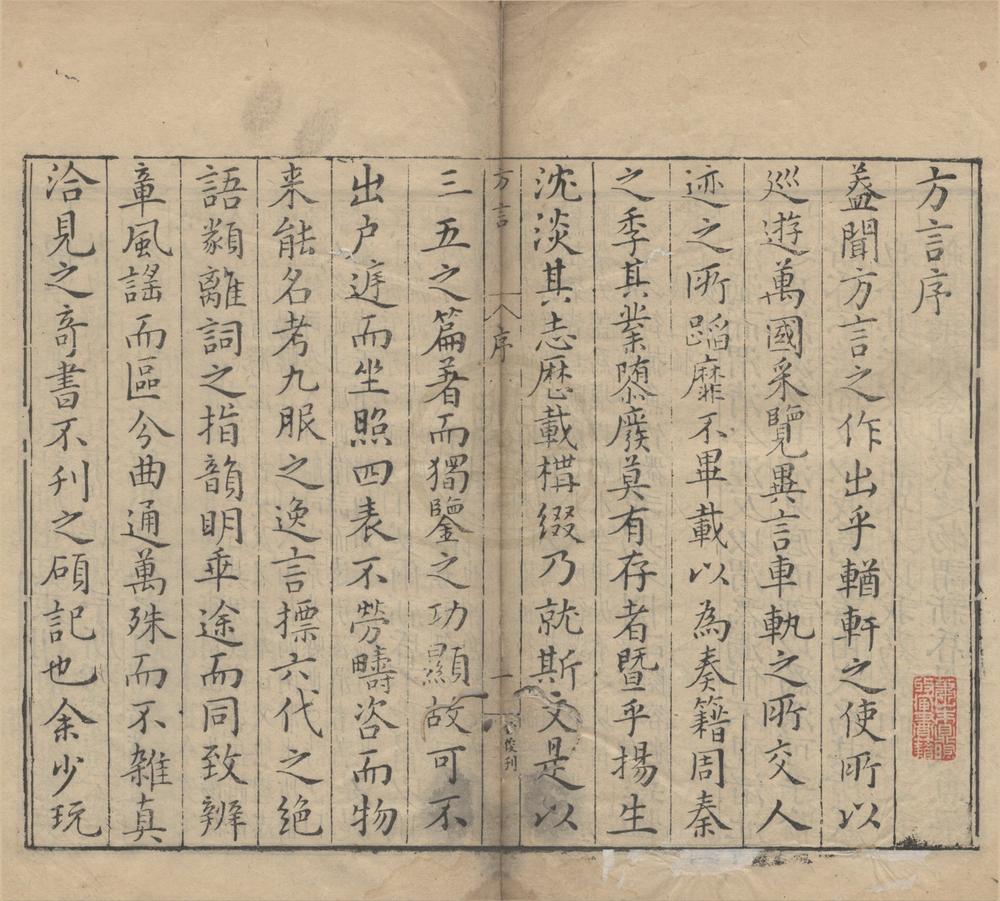 方言序
葢聞方言之作出乎輶軒之使所以
巡遊萬國采覽異言車軌之所交人
迹之所蹈靡不畢載以為奏籍周秦
之季其業隳廢莫有存者暨乎揚生
沈淡其志歷載構綴乃就斯文是以
方言
序
一
俊刊
三五之篇著而獨鑒之功顯故可不
出户庭而坐照四表不勞疇咨而物
来能名考九服之逸言摽六代之绝
語類離詞之指韻明乖途而同致辨
章風謡而區分曲通萬殊而不雜真
洽見之奇書不刋之碩記也余少玩